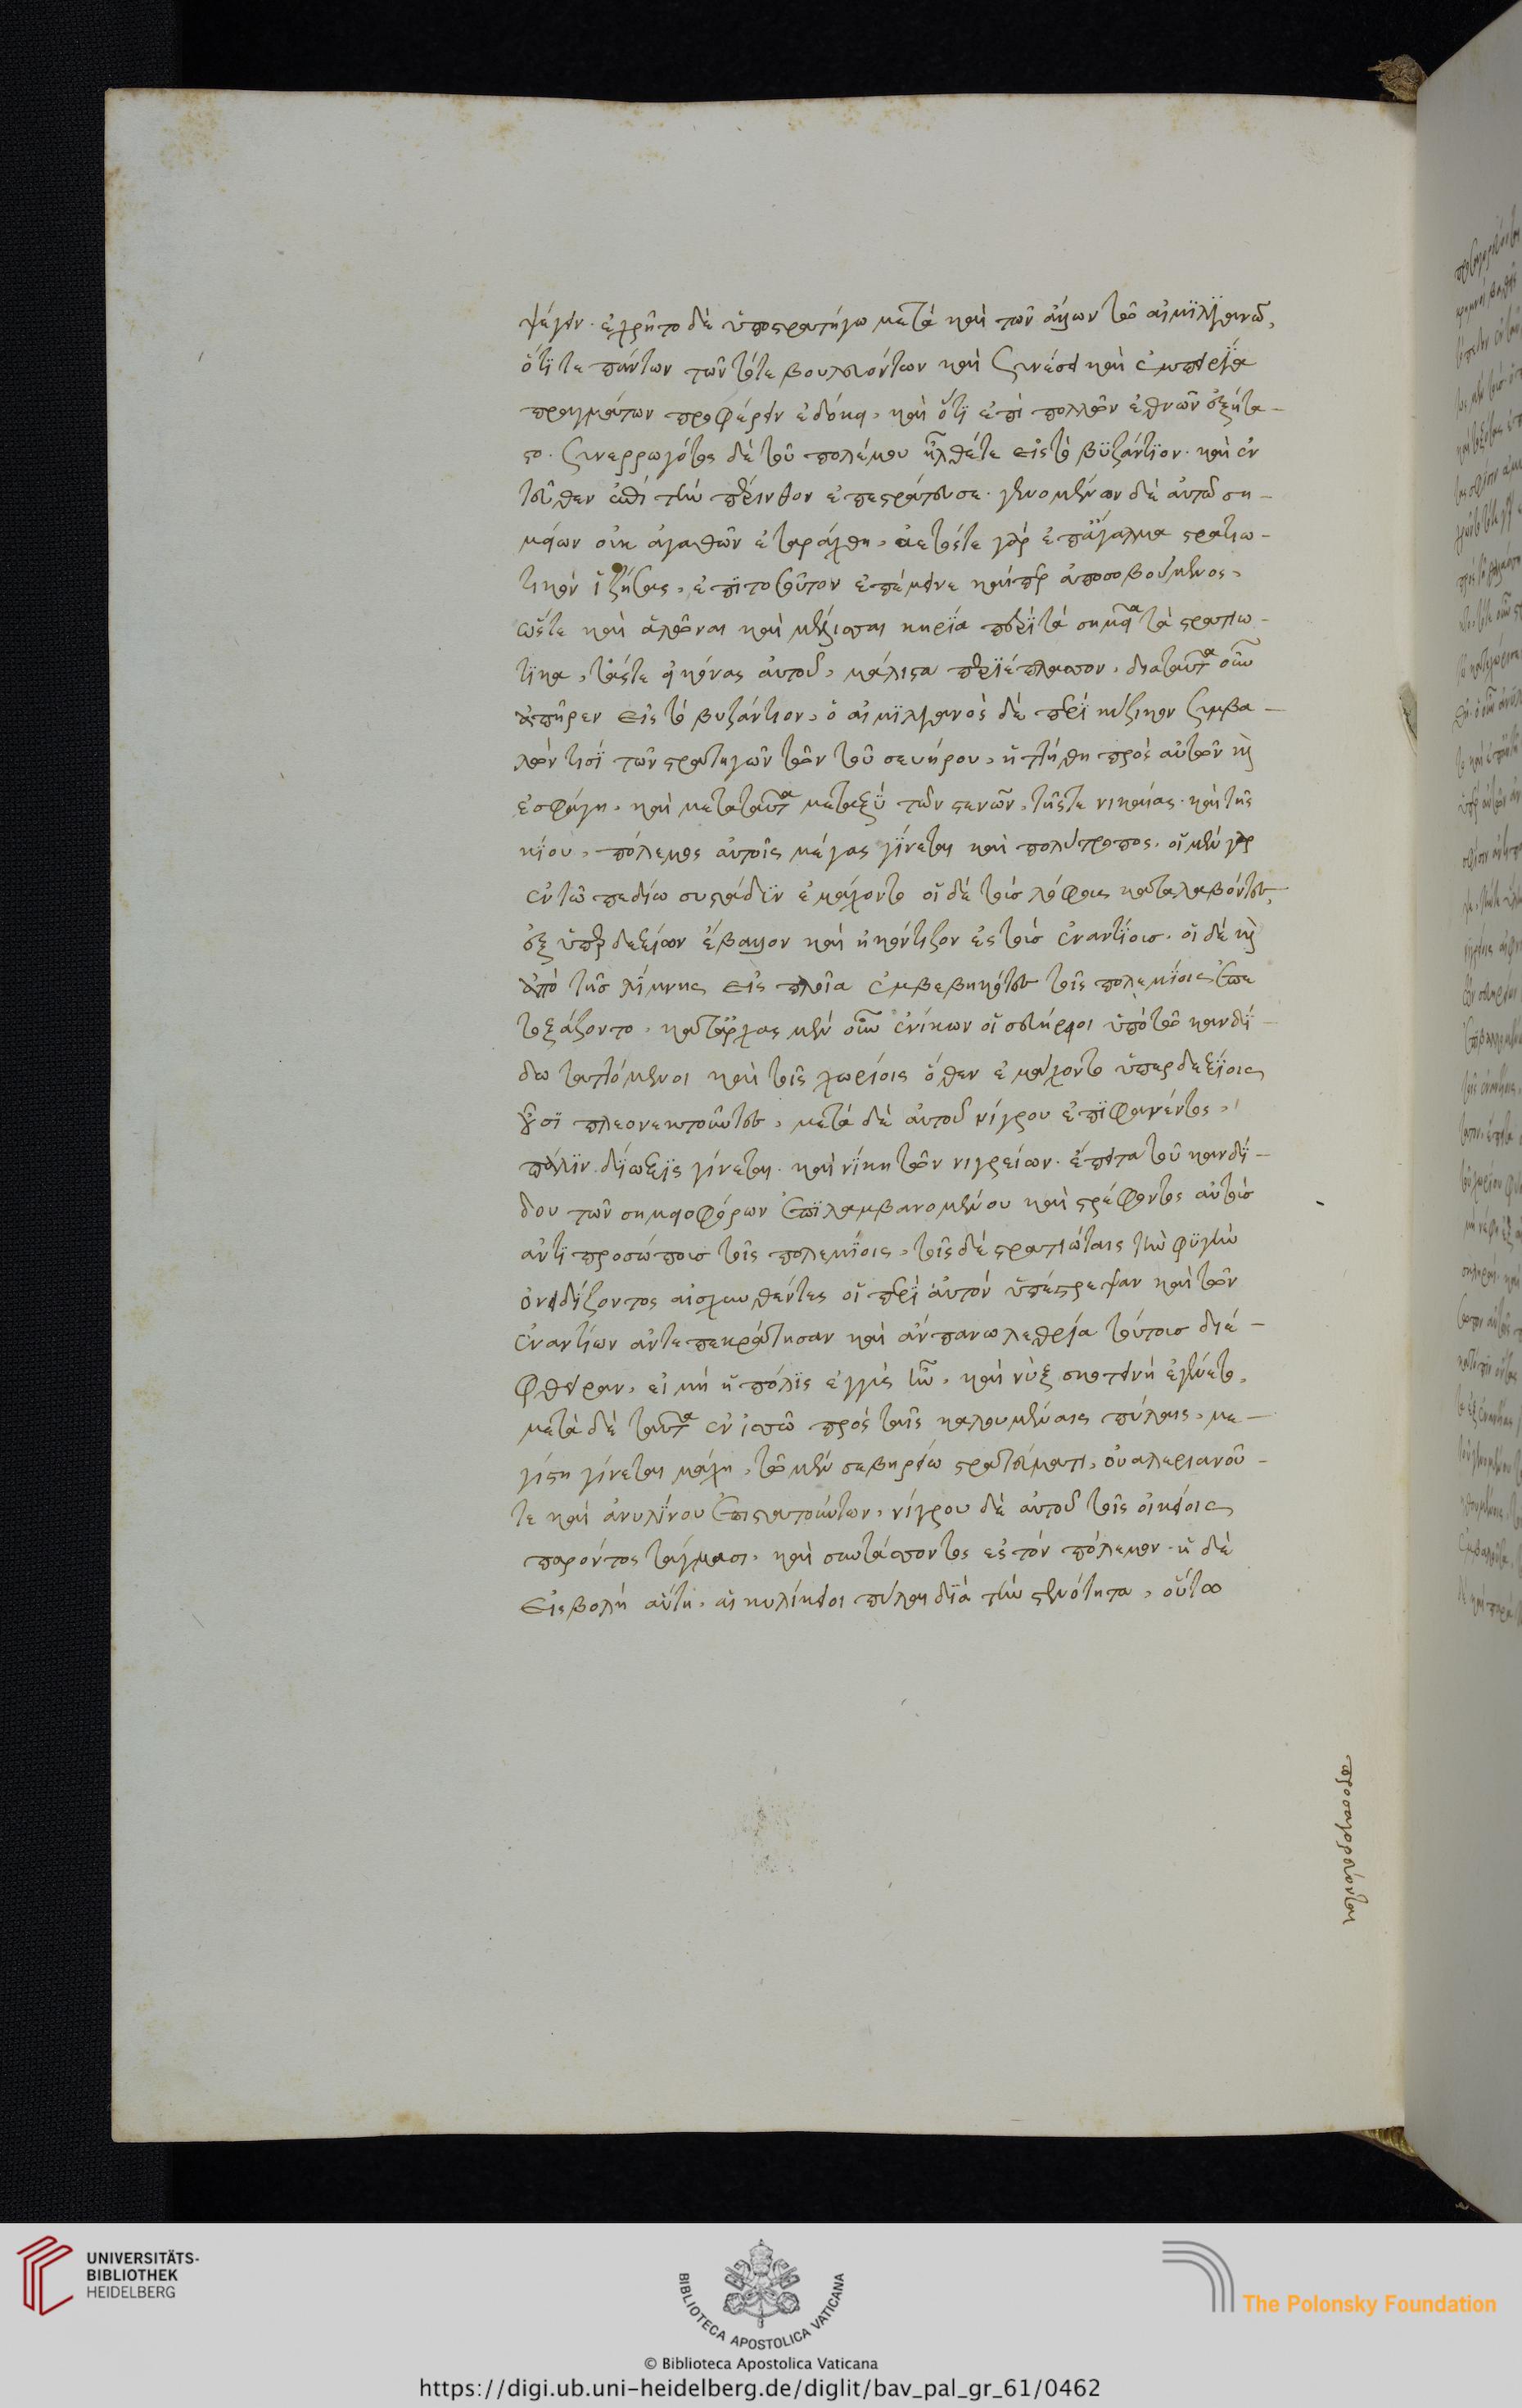 ψέγειν. ἐχρῆτο δὲ ὑποστρατήγω μετὰ καὶ τῶν ἄλλων τῶ αἰμιλϊανῶ,
ὅτι τε πάντων τῶν τότε βουλευόντων καὶ συνέσει καὶ ἐμπειρία
πραγμάτων προφέρειν ἐδόκει, καὶ ὅτι ἐπὶ πολλῶν ἐθνῶν ἐξήτα-
στο. συνερρωγότος δὲ τοῦ πολέμου ἦλθέ τε εἰς τὸ βυζάντϊον. καὶ ἐν
τεῦθεν ἐπὶ τὴν πέρινθον ἐπεστράτευσε. γενομένων δὲ αὐτῶ ση-
μείων οὐκ ἀγαθῶν ἐταράχθη. ἀετός τε γὰρ ἐπ' ἄγαλμα στρατιω-
τικὸν ἱζήσας, ἐπὶ τοσοῦτον ἐπέμεινε καίπερ ἀποσοβούμενος,
ὥστε καὶ ἁλῶναι καὶ μέλισσαι κηρία περὶ τὰ σημεῖα τὰ στρατιω-
τικὰ, τάς τε εἰκόνας αὐτοῦ, μάλιστα περιέπλασσον. διὰ ταῦτα οὖν
ἀπῆρεν εἰς τὸ βυζάντιον. ὁ αἰμιλϊανὸς δὲ περὶ κύζικον συμβα-
λών τισϊ τῶν στρατηγῶν τῶν τοῦ σευήρου, ἡττήθη πρὸς αὐτῶν καὶ
ἐσφάγη. καὶ μετὰ ταῦτα μεταξὺ τῶν στενῶν, τῆς τε νικαίας. καὶ τῆς
κίου, πόλεμος αὐτοῖς μέγας γίνεται καὶ πολύτροπος. οἱ μὲν γὰρ
ἐν τῶ πεδίω συστάδϊν ἐμάχοντο οἱ δὲ τοὺς λόφους καταλαβόντες,
ἐξ ὑπερδεξίων ἔβαλλον καὶ ἠκόντιζον ἐς τοὺς ἐναντίους. οἱ δὲ καὶ
ἀπὸ τῆς λίμνης εἰς πλοῖα ἐμβεβηκότες τοῖς πολεμίοις ἐπε
τοξάζοντο. κατ' ἀρχὰς μὲν οὖν ἐνίκων οἱ σευήρειοι ὑπὸ τῶ κανδί-
δω ταττόμενοι καὶ τοῖς χωρίοις ὅθεν ἐμάχοντο ὑπερδεξίοις
οὖσϊ πλεονεκτοῦντες. μετὰ δὲ αὐτοῦ νίγρου ἐπϊφανέντος,
πάλϊν δίωξις γίνεται. καὶ νίκη τῶν νιγρείων. ἔπειτα τοῦ κανδί-
δου τῶν σημειοφόρων ἐπϊλαμβανομένου καὶ στρέφοντος αὐτοὺς
ἀντϊπροσώπους τοῖς πολεμίοις, τοῖς δὲ στρατιώταις τὴν φϋγὴν
ὀνειδίζοντος αἰσχυνθέντες οἱ περὶ αὐτὸν ὑπέστρεψαν καὶ τῶν
ἐναντίων ἀντεπεκράτησαν καὶ ἂν πανωλεθρία τούτους διέ-
φθειραν, εἰ μὴ ἡ πόλϊς ἐγγὺς ἦν, καὶ νὺξ σκοτεινὴ ἐγένετο.
μετὰ δὲ ταῦτα ἐν ἰσσῶ πρὸς ταῖς καλουμέναις πύλαις, με-
γίστη γίνεται μάχη, τῶ μὲν σεβηρείω στρατεύματι, οὐαλεριανοῦ-
τε καὶ ἀνυλίνου ἐπιστατούντων, νίγρου δὲ αὐτοῦ τοῖς οἰκείοις
παρόντος τάγμασι. καὶ συντάσσοντος ἐς τὸν πόλεμον. ἡ δὲ
εἰσβολὴ αὕτη. αἱ κυλίκειοι πύλαι διὰ τὴν στενότητα, οὕτω
προσαγορεύονται
UNIVERSITÄTS-
BIBLIOTHEK
HEIDELBERG
BIBLIOTECA APOSTOLICA VATICANA
The Polonsky Foundation
© Biblioteca Apostolica Vaticana
https://digi.ub.uni-heidelberg.de/diglit/bav_pal_gr_61/0462